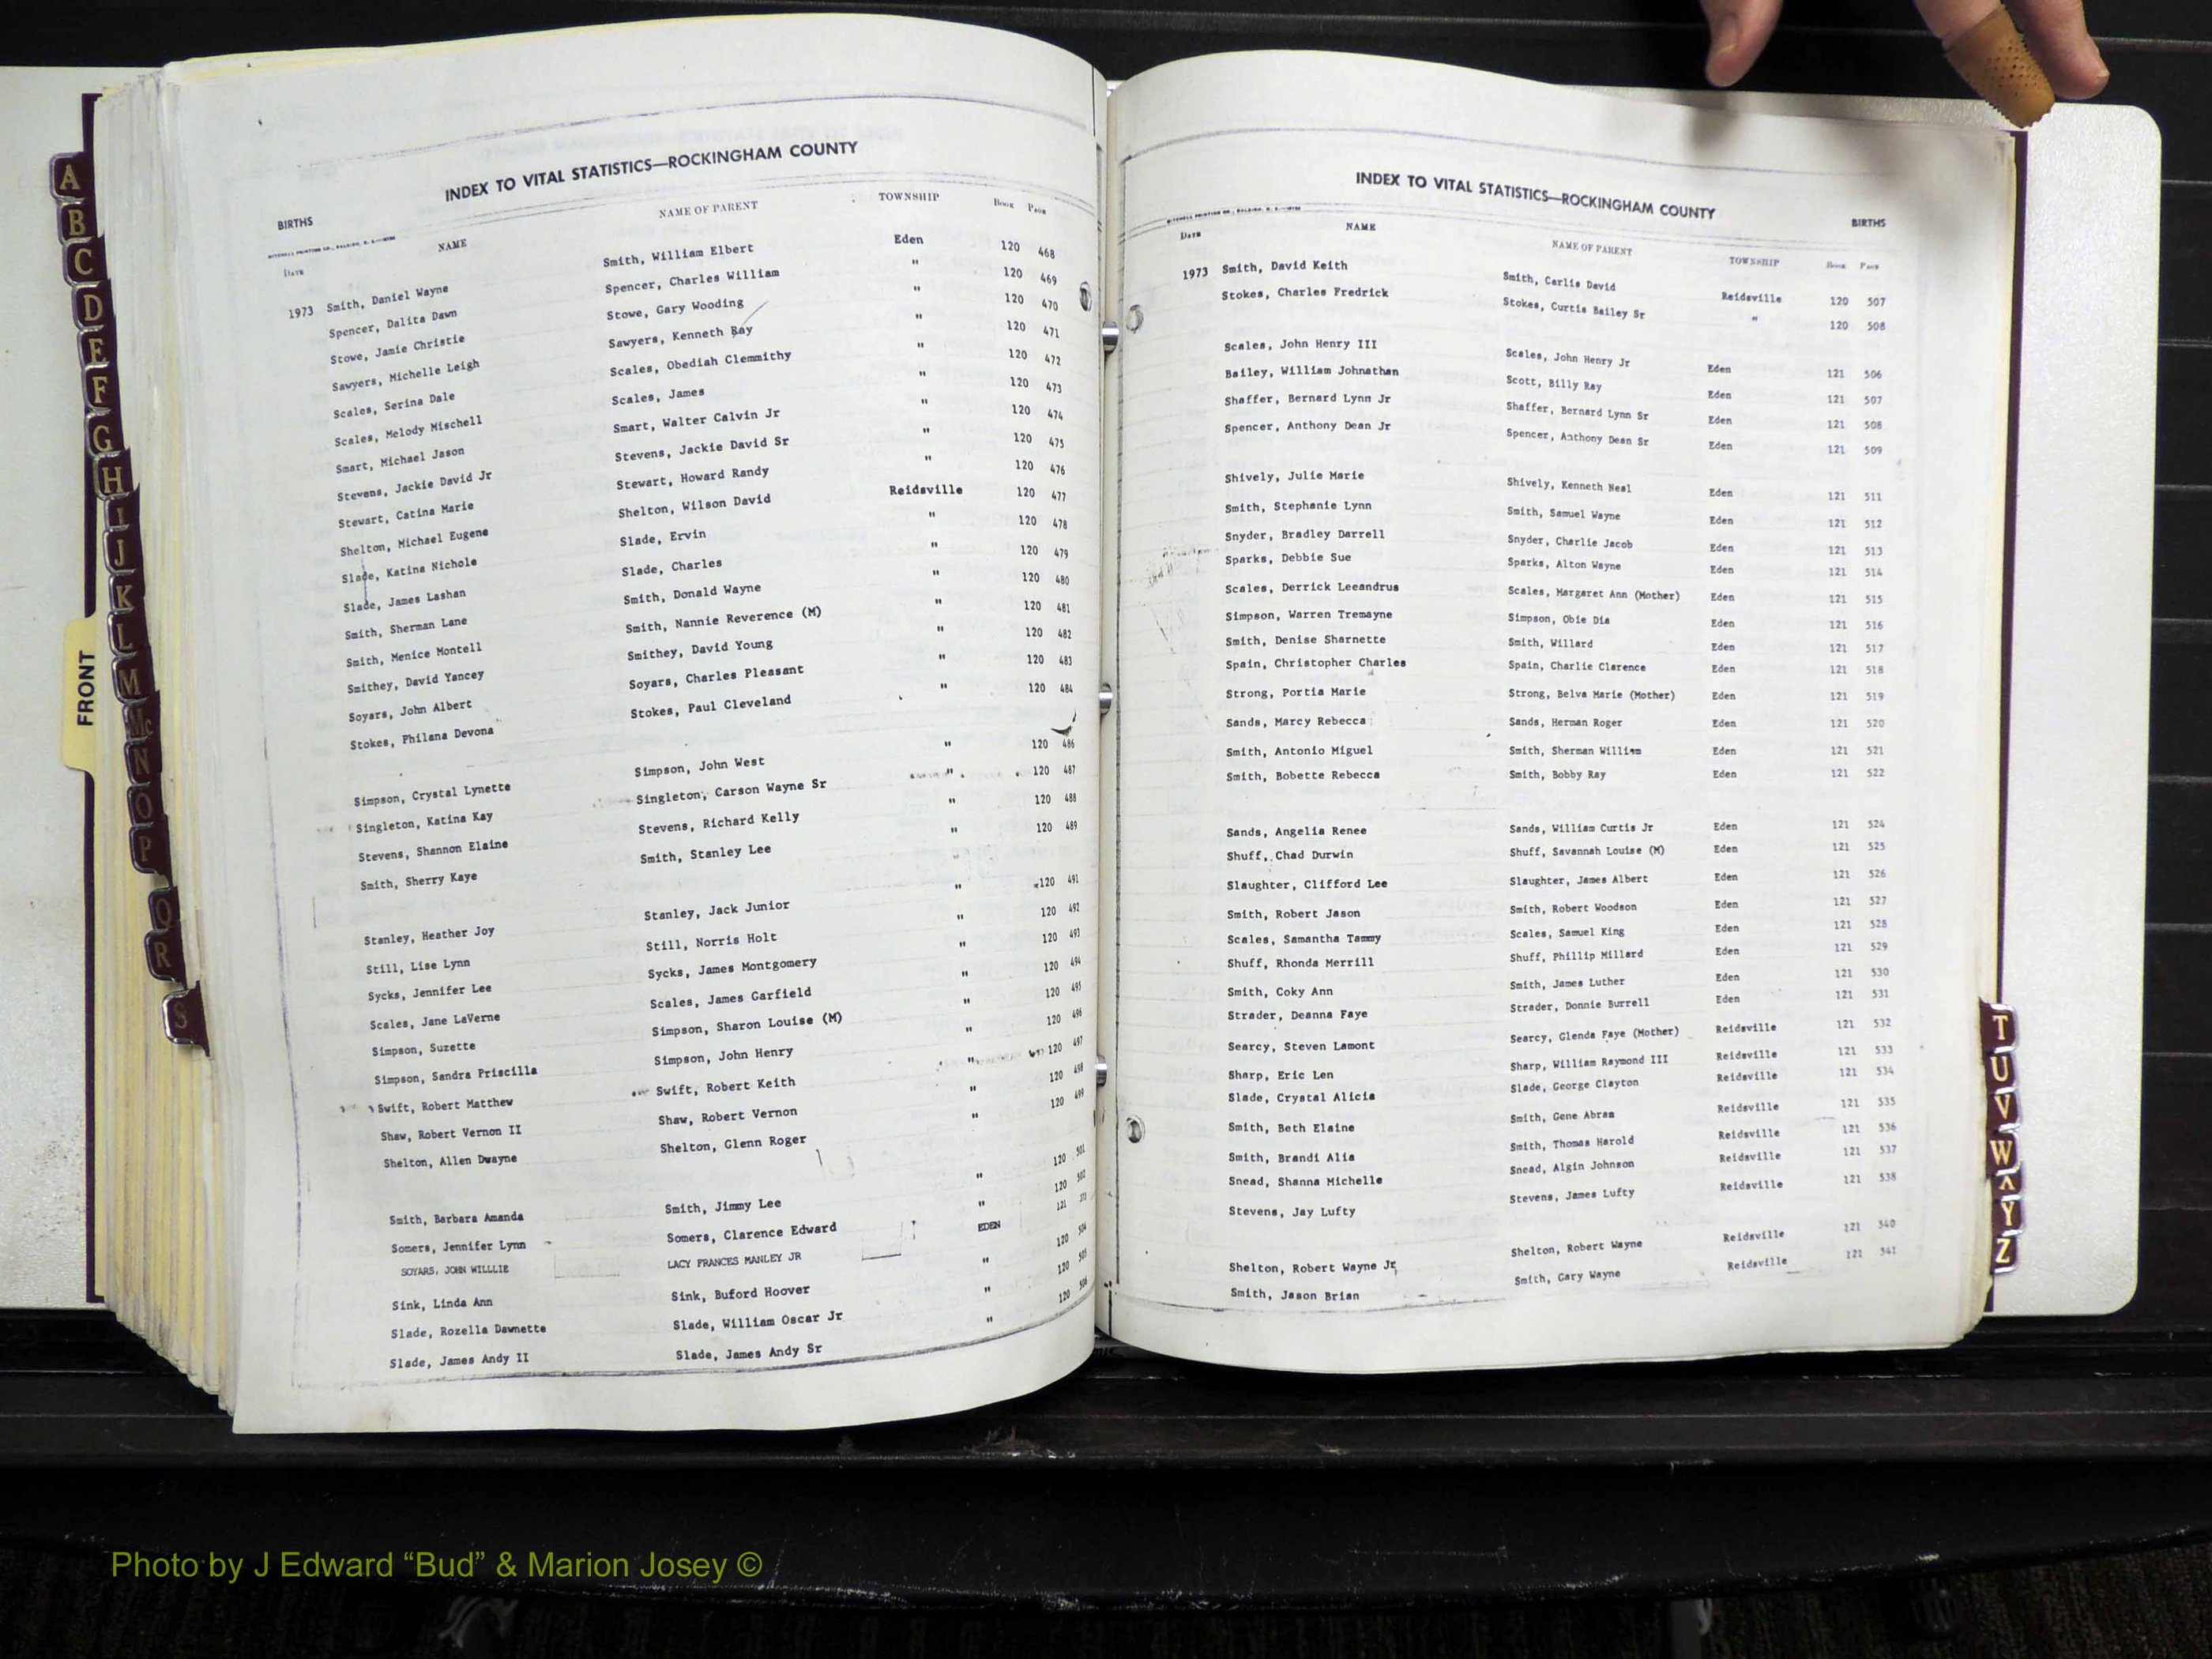 INDEX TO VITAL STATISTICS—ROCKINGHAM COUNTY
BIRTHS
DATE NAME NAME OF PARENT TOWNSHIP BOOK PAGE
1973 Smith, Daniel Wayne Smith, William Elbert Eden 120 468
Spencer, Dalita Dawn Spencer, Charles William " 120 469
Stowe, Jamie Christie Stowe, Gary Wooding " 120 470
Sawyers, Michelle Leigh Sawyers, Kenneth Ray " 120 471
Scales, Serina Dale Scales, Obediah Clemmithy " 120 472
Scales, Melody Mischell Scales, James " 120 473
Smart, Michael Jason Smart, Walter Calvin Jr " 120 474
Stevens, Jackie David Jr Stevens, Jackie David Sr " 120 475
Stewart, Catina Marie Stewart, Howard Randy " 120 476
Shelton, Michael Eugene Shelton, Wilson David Reidsville 120 477
Slade, Katina Nichole Slade, Ervin " 120 478
Slade, James Lashan Slade, Charles " 120 479
Smith, Sherman Lane Smith, Donald Wayne " 120 480
Smith, Menice Montell Smith, Nannie Reverence (M) " 120 481
Smithey, David Yancey Smithey, David Young " 120 482
Soyars, John Albert Soyars, Charles Pleasant " 120 483
Stokes, Philana Devona Stokes, Paul Cleveland " 120 484
Simpson, Crystal Lynette Simpson, John West " 120 486
Singleton, Katina Kay Singleton, Carson Wayne Sr " 120 487
Stevens, Shannon Elaine Stevens, Richard Kelly " 120 488
Smith, Sherry Kaye Smith, Stanley Lee " 120 489
Stanley, Heather Joy Stanley, Jack Junior " 120 491
Still, Lise Lynn Still, Norris Holt " 120 492
Sycks, Jennifer Lee Sycks, James Montgomery " 120 493
Scales, Jane LaVerne Scales, James Garfield " 120 494
Simpson, Suzette Simpson, Sharon Louise (M) " 120 495
Simpson, Sandra Priscilla Simpson, John Henry " 120 496
Swift, Robert Matthew Swift, Robert Keith " 120 497
Shaw, Robert Vernon II Shaw, Robert Vernon " 120 498
Shelton, Allen Dwayne Shelton, Glenn Roger " 120 499
Smith, Barbara Amanda Smith, Jimmy Lee " 120 501
Somers, Jennifer Lynn Somers, Clarence Edward " 120 502
SOYARS, JOHN WILLLIE LACY FRANCES MANLEY JR EDEN 121
Sink, Linda Ann Sink, Buford Hoover " 120 504
Slade, Rozella Dawnette Slade, William Oscar Jr " 120 505
Slade, James Andy II Slade, James Andy Sr " 120 506
INDEX TO VITAL STATISTICS—ROCKINGHAM COUNTY
BIRTHS
DATE NAME NAME OF PARENT TOWNSHIP BOOK PAGE
1973 Smith, David Keith Smith, Carlis David Reidsville 120 507
Stokes, Charles Fredrick Stokes, Curtis Bailey Sr " 120 508
Scales, John Henry III Scales, John Henry Jr Eden 121 506
Bailey, William Johnathan Scott, Billy Ray Eden 121 507
Shaffer, Bernard Lynn Jr Shaffer, Bernard Lynn Sr Eden 121 508
Spencer, Anthony Dean Jr Spencer, Anthony Dean Sr Eden 121 509
Shively, Julie Marie Shively, Kenneth Neal Eden 121 511
Smith, Stephanie Lynn Smith, Samuel Wayne Eden 121 512
Snyder, Bradley Darrell Snyder, Charlie Jacob Eden 121 513
Sparks, Debbie Sue Sparks, Alton Wayne Eden 121 514
Scales, Derrick Leeandrus Scales, Margaret Ann (Mother) Eden 121 515
Simpson, Warren Tremayne Simpson, Obie Dia Eden 121 516
Smith, Denise Sharnette Smith, Willard Eden 121 517
Spain, Christopher Charles Spain, Charlie Clarence Eden 121 518
Strong, Portia Marie Strong, Belva Marie (Mother) Eden 121 519
Sands, Marcy Rebecca Sands, Herman Roger Eden 121 520
Smith, Antonio Miguel Smith, Sherman William Eden 121 521
Smith, Bobette Rebecca Smith, Bobby Ray Eden 121 522
Sands, Angelia Renee Sands, William Curtis Jr Eden 121 524
Shuff, Chad Durwin Shuff, Savannah Louise (M) Eden 121 525
Slaughter, Clifford Lee Slaughter, James Albert Eden 121 526
Smith, Robert Jason Smith, Robert Woodson Eden 121 527
Scales, Samantha Tammy Scales, Samuel King Eden 121 528
Shuff, Rhonda Merrill Shuff, Phillip Millard Eden 121 529
Smith, Coky Ann Smith, James Luther Eden 121 530
Strader, Deanna Faye Strader, Donnie Burrell Eden 121 531
Searcy, Steven Lamont Searcy, Glenda Faye (Mother) Reidsville 121 532
Sharp, Eric Len Sharp, William Raymond III Reidsville 121 533
Slade, Crystal Alicia Slade, George Clayton Reidsville 121 534
Smith, Beth Elaine Smith, Gene Abram Reidsville 121 535
Smith, Brandi Alia Smith, Thomas Harold Reidsville 121 536
Snead, Shanna Michelle Snead, Algin Johnson Reidsville 121 537
Stevens, Jay Lufty Stevens, James Lufty Reidsville 121 538
Shelton, Robert Wayne Jr Shelton, Robert Wayne Reidsville 121 540
Smith, Jason Brian Smith, Gary Wayne Reidsville 121 541
A
B
C
D
E
F
G
H
I
J
K
L
M
Mc
N
O
P
Q
R
S
FRONT
T
U
V
W
X
Y
Z
Photo by J Edward “Bud” & Marion Josey ©